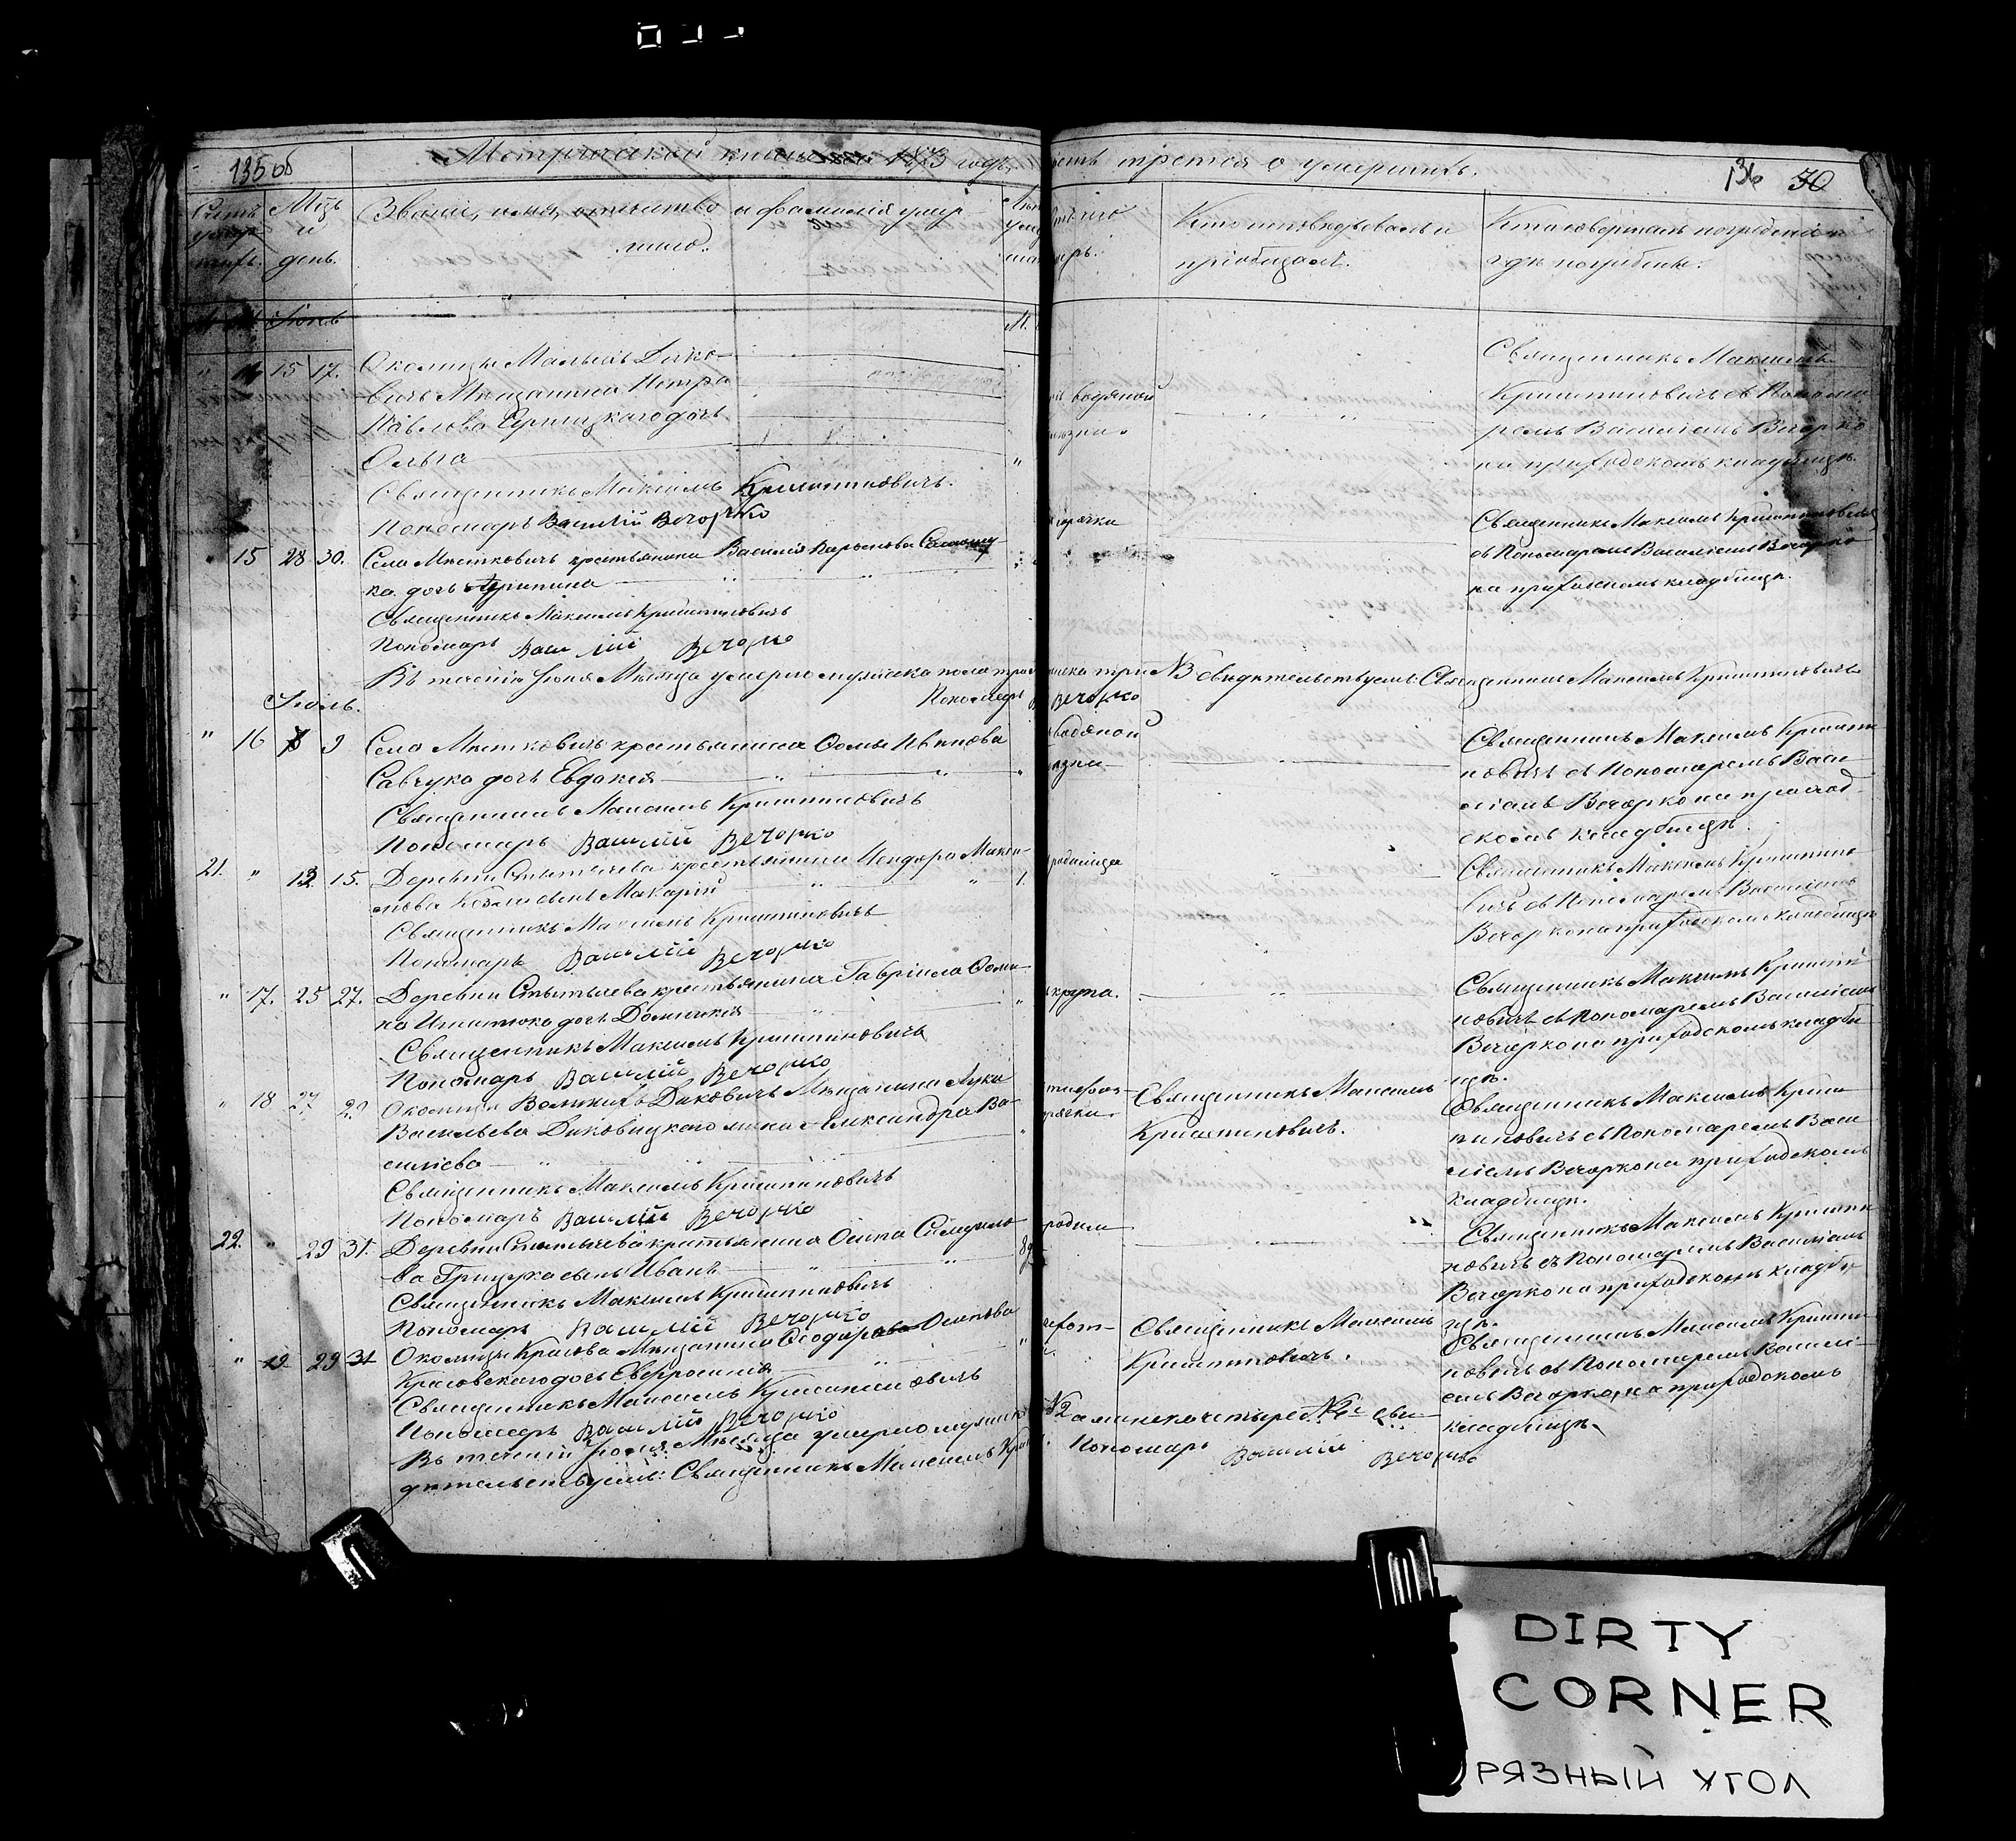 135 об
Метрической книги на 1873 годъ
часть третья о умершихъ.
136 50
Счетъ умер шихъ.
Мцъ и день.
Званіе, имя, отчество и фамилія умер-
шаго.
Кто исповѣдывалъ и
пріобщалъ.
Кто совершалъ погребеніе и
гдѣ погребены.
Іюнь
М.
" 14 15 17. Околицы Малыхъ Дико-
вичъ Мѣщанина Петра
Павлова Сѣрницкаго дочь
Ольга
Священникъ Максимъ Криштиновичъ.
Пономарь Василій Вечорко
водяной
Священникъ Максимъ
Криштиновичъ съ Понома
ремъ Василіемъ Вечорко
на приходскомъ кладбищѣ.
" 15 28 30. Села Мѣстковичъ крестьянина Василія
ка дочь Агрипина
Священникъ Максимъ Криштиновичъ
Пономарь Василій Вечорко
горячки
Священникъ Максимъ Криштиновичъ
съ Пономаремъ Василіемъ Вечорко
на приходскомъ кладбищѣ.
Въ теченіи Іюня Мѣсяца умерло мужеска пола три
женска три №3 свидѣтельствуемъ: Священникъ Максимъ Криштиновичъ
Пономарь В Вечорко
Іюль.
" 16 8 9 Села Мѣстковичъ крестьянина Ѳомы
Савчука дочь Евдокія
Священникъ Максимъ Криштиновичъ
Пономарь Василій Вечорко
водяной
Священникъ Максимъ Кришти
новичъ съ Пономаремъ Васи
ліемъ Вечорко на приход-
скомъ кладбищѣ.
21. " 13 15. Деревни Стытычева крестьянина Исидора Макси-
мова сынъ Макарій 1.
Священникъ Максимъ Криштиновичъ
Пономарь Василій Вечорко
родимца
Священникъ Максимъ Криштино
вичъ съ Пономаремъ Василіемъ
Вечорко на приходскомъ кладбищѣ
" 17. 25 27. Деревни Стытычева крестьянина Гавріила Ѳоми-
на дочь Домникія
Священникъ Максимъ Криштиновичъ
Пономарь Василій Вечорко
крупа.
Священникъ Максимъ Кришти
новичъ съ Пономаремъ Василіемъ
Вечорко на приходскомъ кладби
щѣ.
" 18 27 29 Околицы Великихъ Диковичъ Мѣщанина Луки
Васильева Диковицкаго жена Александра Ва-
силіева
Священникъ Максимъ Криштиновичъ
Пономарь Василій Вечорко
Священникъ Максимъ
Криштиновичъ.
Священникъ Максимъ Кришти
новичъ съ Пономаремъ Васи
ліемъ Вечорко на приходскомъ
кладбищѣ.
22. " 29 31. Деревни Стытычева крестьянина Осипа
ва Грицука сынъ Иванъ
Священникъ Максимъ Криштиновичъ
Пономарь Василій Вечорко
родим
Священникъ Максимъ Кришти
новичъ съ Пономаремъ Василіемъ
Вечорко на приходскомъ кладби
щѣ.
" 19 29 31 Околицы Красова Мѣщанина Ѳеодора Осипова
Красовскаго дочь Евфросинія
Священникъ Максимъ Криштиновичъ
Пономарь Василій Вечорко
Священникъ Максимъ
Криштиновичъ.
Священникъ Максимъ Кришти
новичъ съ Пономаремъ Василі-
емъ Вечорко, на приходскомъ
кладбищѣ.
Въ теченіи Іюля Мѣсяца умерло мужска
№2 а женска четыре №4 сви-
дѣтельствуемъ: Священникъ Максимъ
Пономарь Василій Вечорко
DIRTY
CORNER
РЯЗНЫЙ УГОЛ